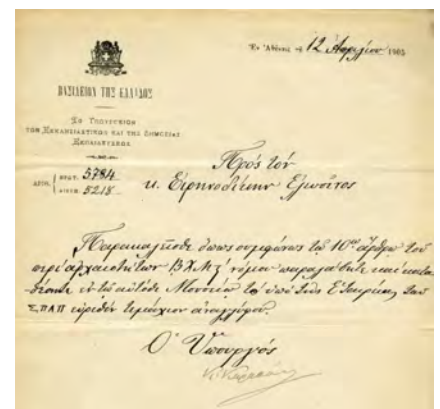 Ἐν Ἀθήναις τῇ 12 Ἀπριλίου 1905
ΒΑΣΙΛΕΙΟΝ ΤΗΣ ΕΛΛΑΔΟΣ
Τὸ Ὑπουργεῖον
τῶν Ἐκκλησιαστικῶν καὶ τῆς Δημοσίας
Ἐκπαιδεύσεως
ΑΡΙΘ. ΠΡΩΤ. 5784
ΔΙΕΚΠ. 5218
Πρὸς τὸν
κ. Εἰρηνοδίκην Ἐλευσῖνος
Παρακαλεῖσθε ὅπως συμφώνως τῷ 10ῳ ἄρθρῳ τοῦ
περὶ ἀρχαιοτήτων ΒΧΜϚ΄ νόμου παραλάβητε καὶ κατα-
θέσητε ἐν τῷ αὐτόθι Μουσείῳ τὸ ὑπὸ τῆς Ἑταιρίας τοῦ
ΣΠΑΠ εὑρεθὲν τεμάχιον ἀναγλύφου.
Ὁ Ὑπουργός